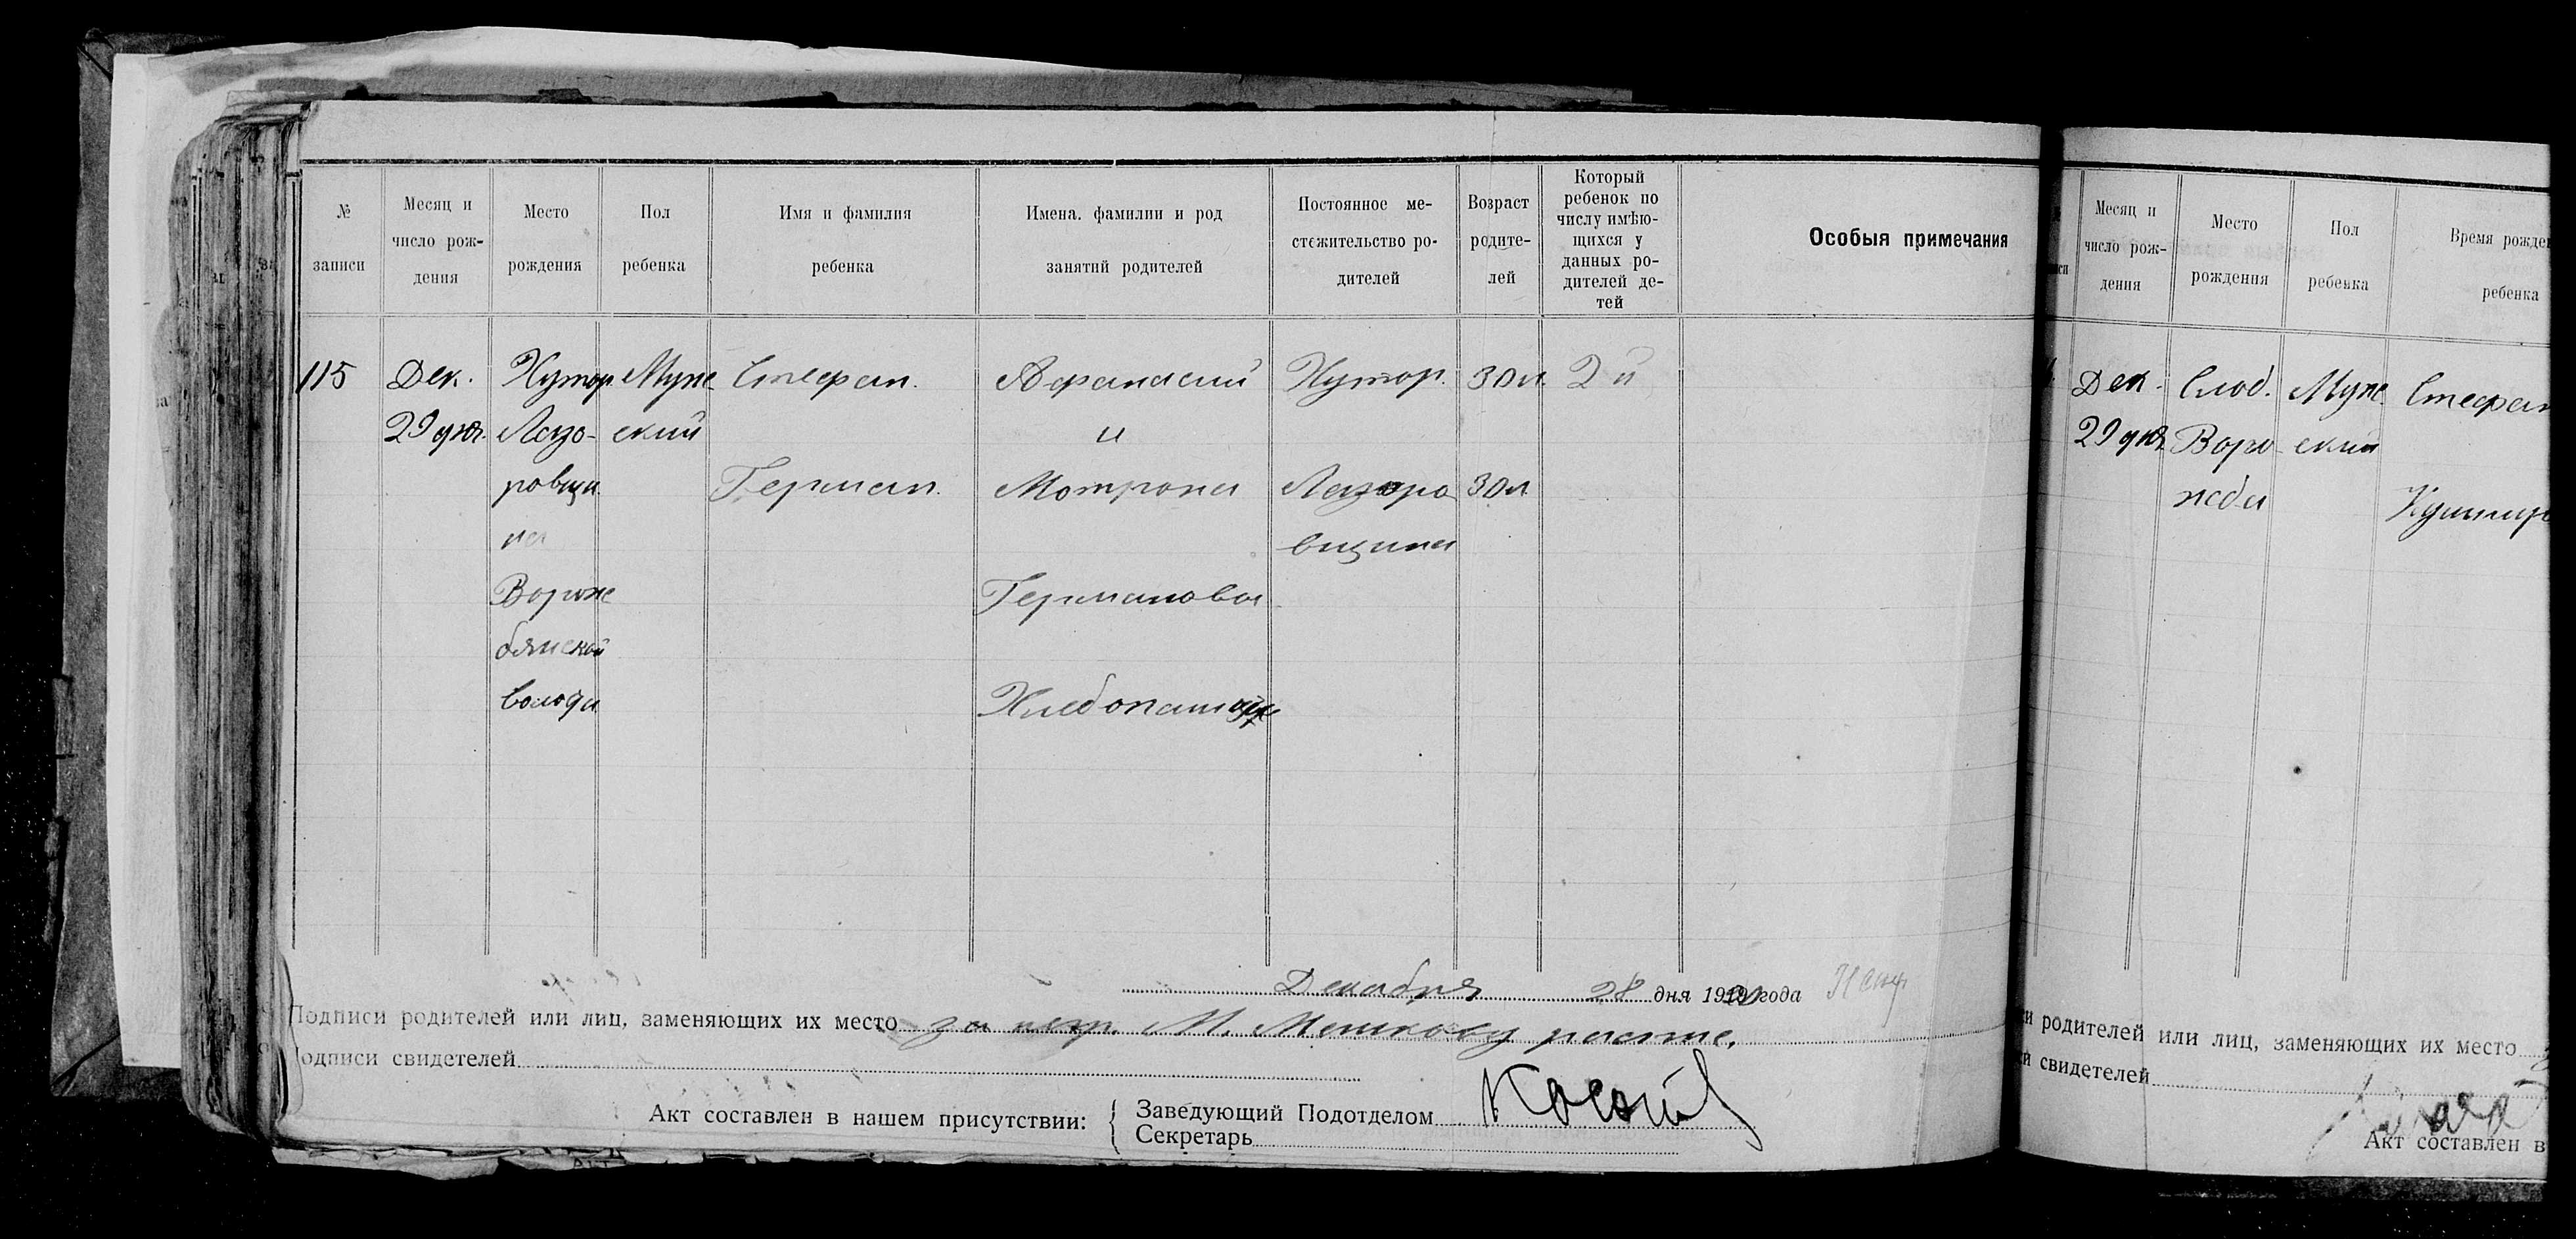 № записи
Месяц и число рож-дения
Место рождения
Пол ребенка
Имя и фамилия ребенка
Имена. фамилии и род занятий родителей
Постоянное ме-стожительство ро-дителей
Возраст родите-лей
Который ребенок по числу имѣю-щихся у данных ро-дителей де-тей
Особыя примечания
115
Дек.
29 дня
Хутор
Лазо-
ровщи
на
Вороже
бянской
волости
Муж
ский
Стефан.
Герман.
Афанасий
и
Мотрона
Германовы
Хлебопашцы
Хутор.
Лазоро
вщина
30 л.
30 л.
2й
Декабря 28 дня 1920 года
Подписи родителей или лиц, заменяющих их место за негр. М. Мешкову распис.
Подписи свидетелей
Акт составлен в нашем присутствии:
Заведующий Подотделом
Секретарь
Месяц и число рож-дения
Место рождения
Пол ребенка
Время рожде
ребенка
Дек.
29 дня
Слоб.
Воро-
жба
Муж
ский
Стефан
и родителей или лиц, заменяющих их место
и свидетелей
Акт составлен в